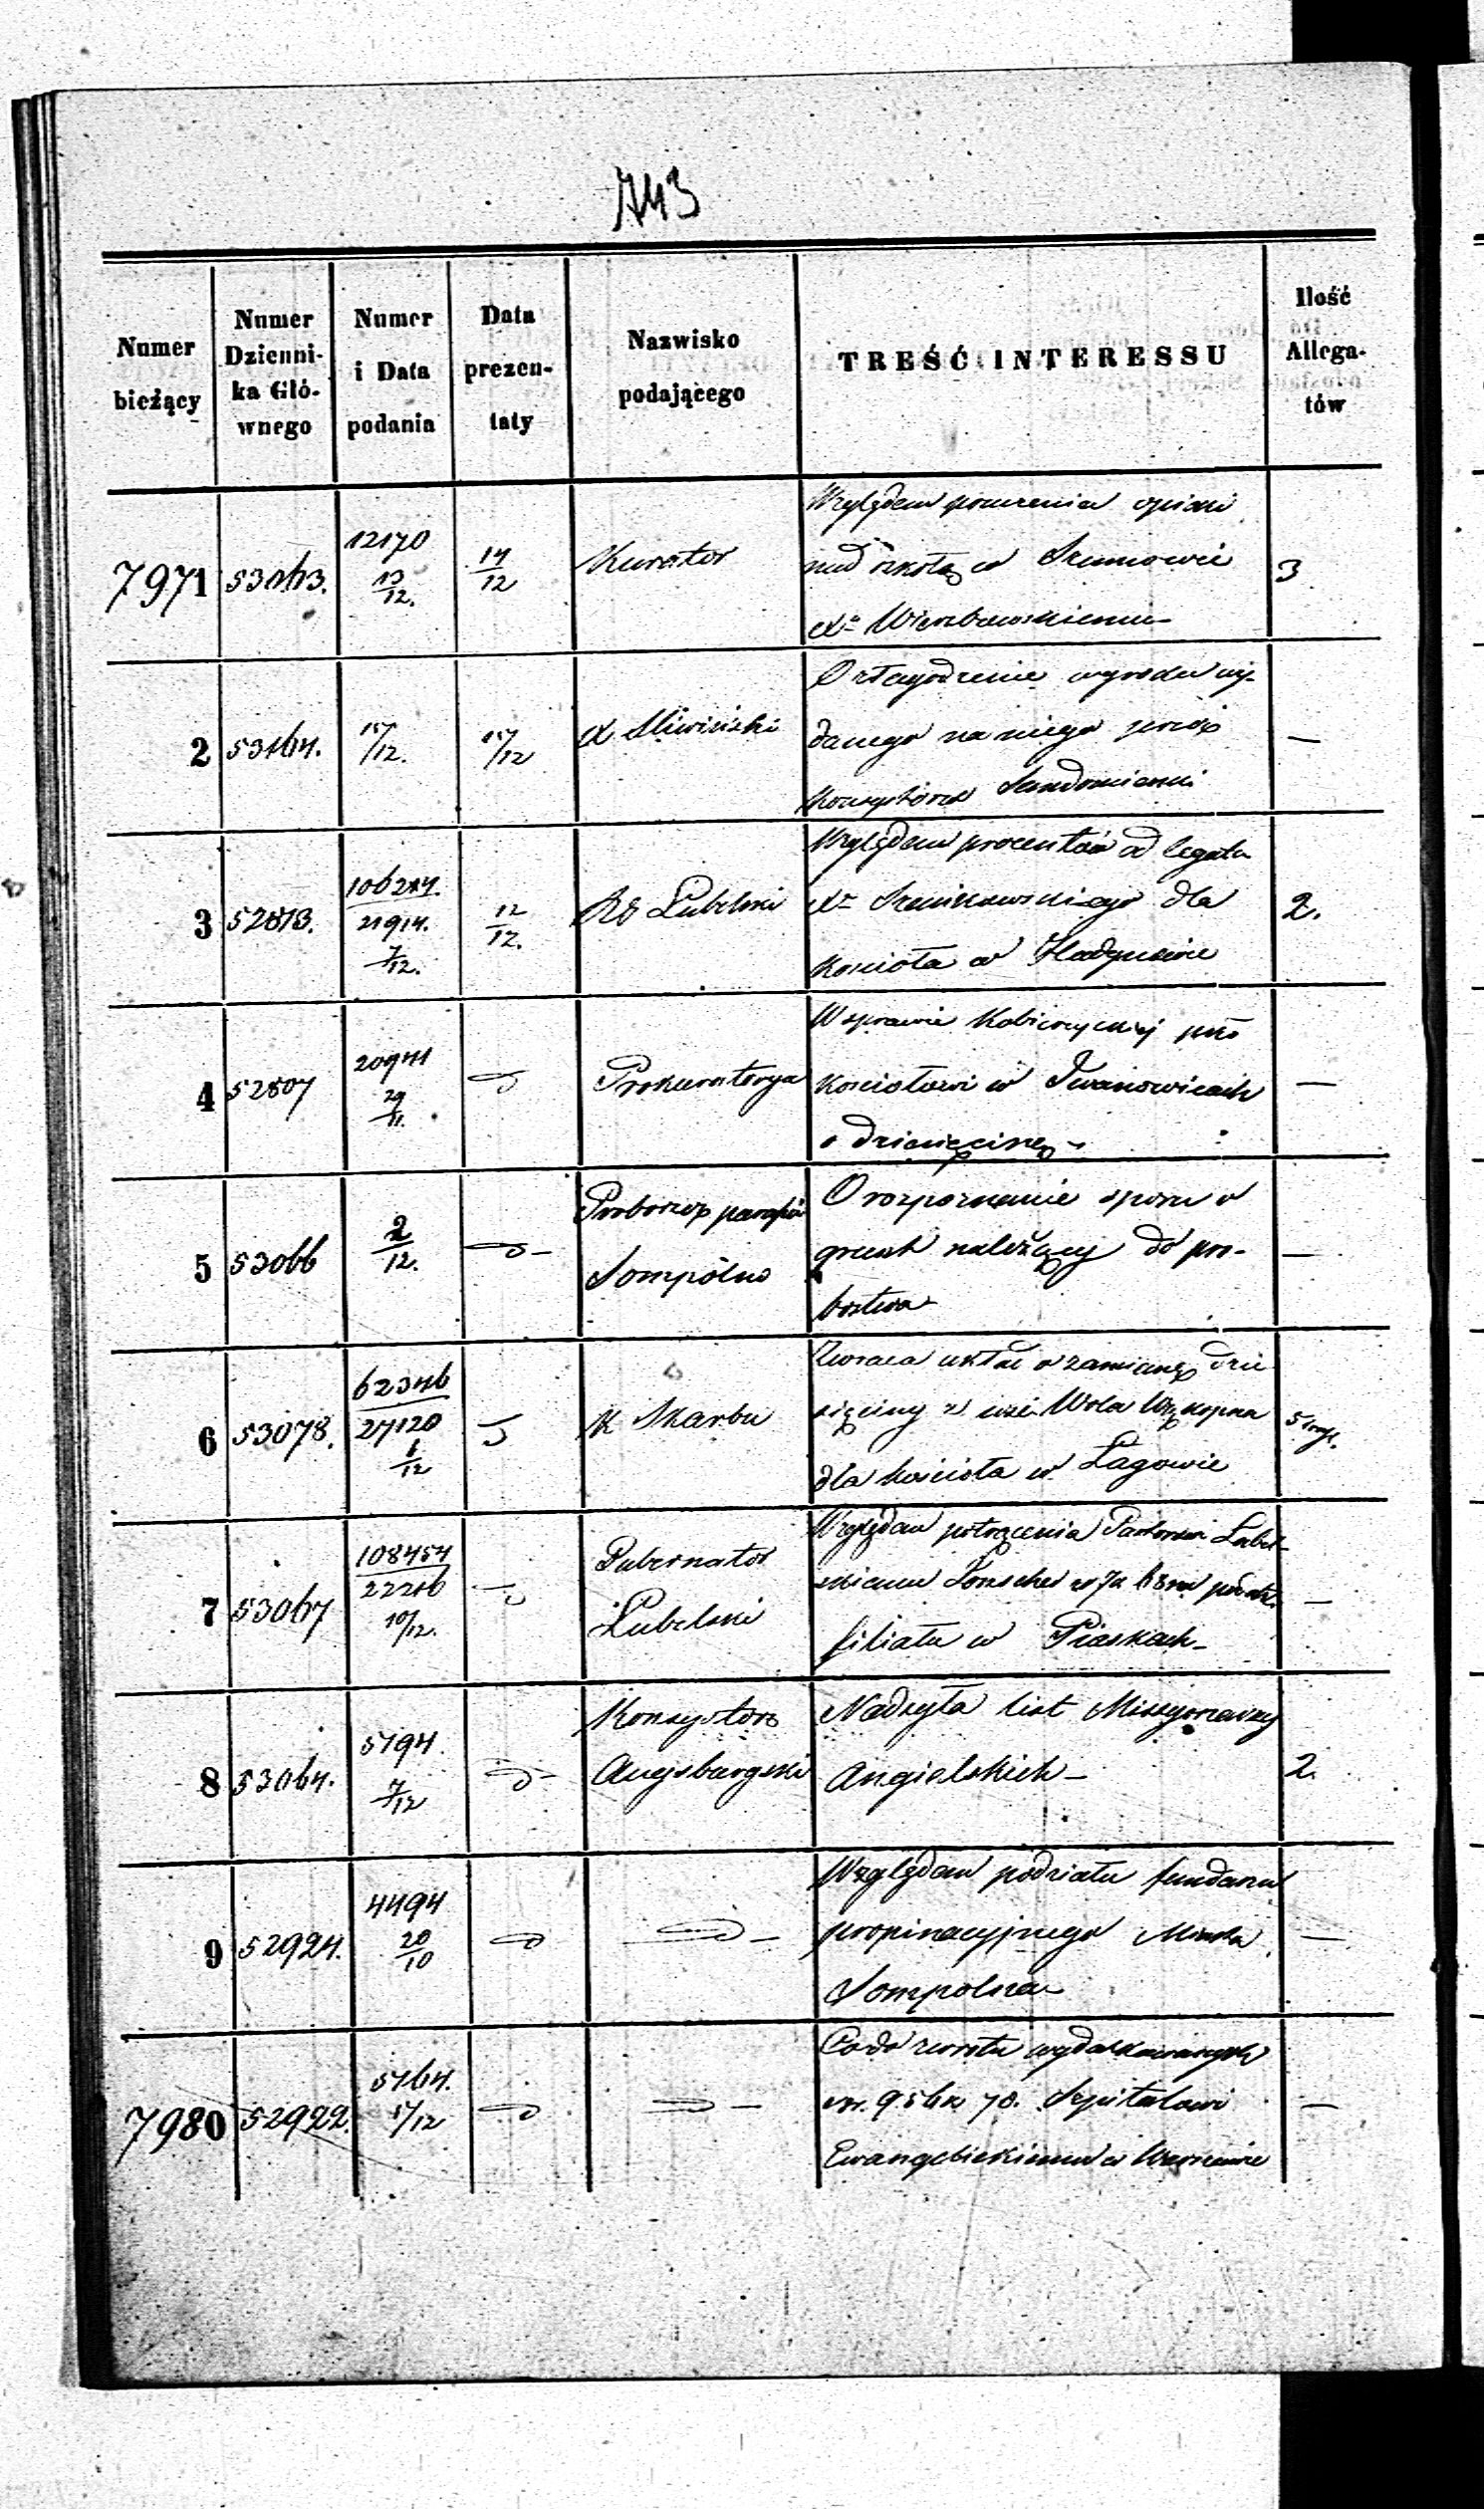 743
Numer bieżący
Numer Dzienni- ka Głó- wnego
Numer i Data podania
Data prezen- taty
Nazwisko podającego
TREŚĆ INTERESSU
Ilość Allega- tów
7971 53163. 12170 13/12. 14/12 Kurator Względem poruczenia opieki 3
nad szkołą w Szumowie
Xu Wierzbowskiemu
2 53164. 15/12. 15/12 X Sliwiński O złagodzenie wyroku wy- —
danego na niego przez
Konsystorz Sandomierski
3 52813. 106284. 21914. 7/12. 12/12. RG Lubelski Względem procentów od legatu 2.
Xa dla
kościoła w
4 52807 20941 29/11. Prokuratorya W sprawie pko —
kościołowi w Iwanowicach
o dziesięcinę
5 53066 2/12. Proboszcz parafii O rozpoznanie sporu o —
Sompolno grunt należący do pro-
bostwa
6 53078. 62346 27120 1/12 K Skarbu Zwraca układ o zamianę dzie-
sięciny z wsi Wola
dla kościoła w Łagowie
7 53067 108454 22216 10/12. Gubernator Względem potrącenia Pastorowi Lubel- —
Lubelski skiemu
filiału w Piaskach
8 53064. 5194. 7/12 Konsystorz Nadsyła list Missyonarzy 2.
Augsburgski Angielskich
9 52924. 4494 20/10 Względem podziału funduszu —
propinacyjnego Miasta
Sompolna
7980 52922. 5164. 5/12 Co do zwrotu wydatkowanych —
rsr. 956 k 70. Szpitalowi
Ewangelickiemu w Warszawie